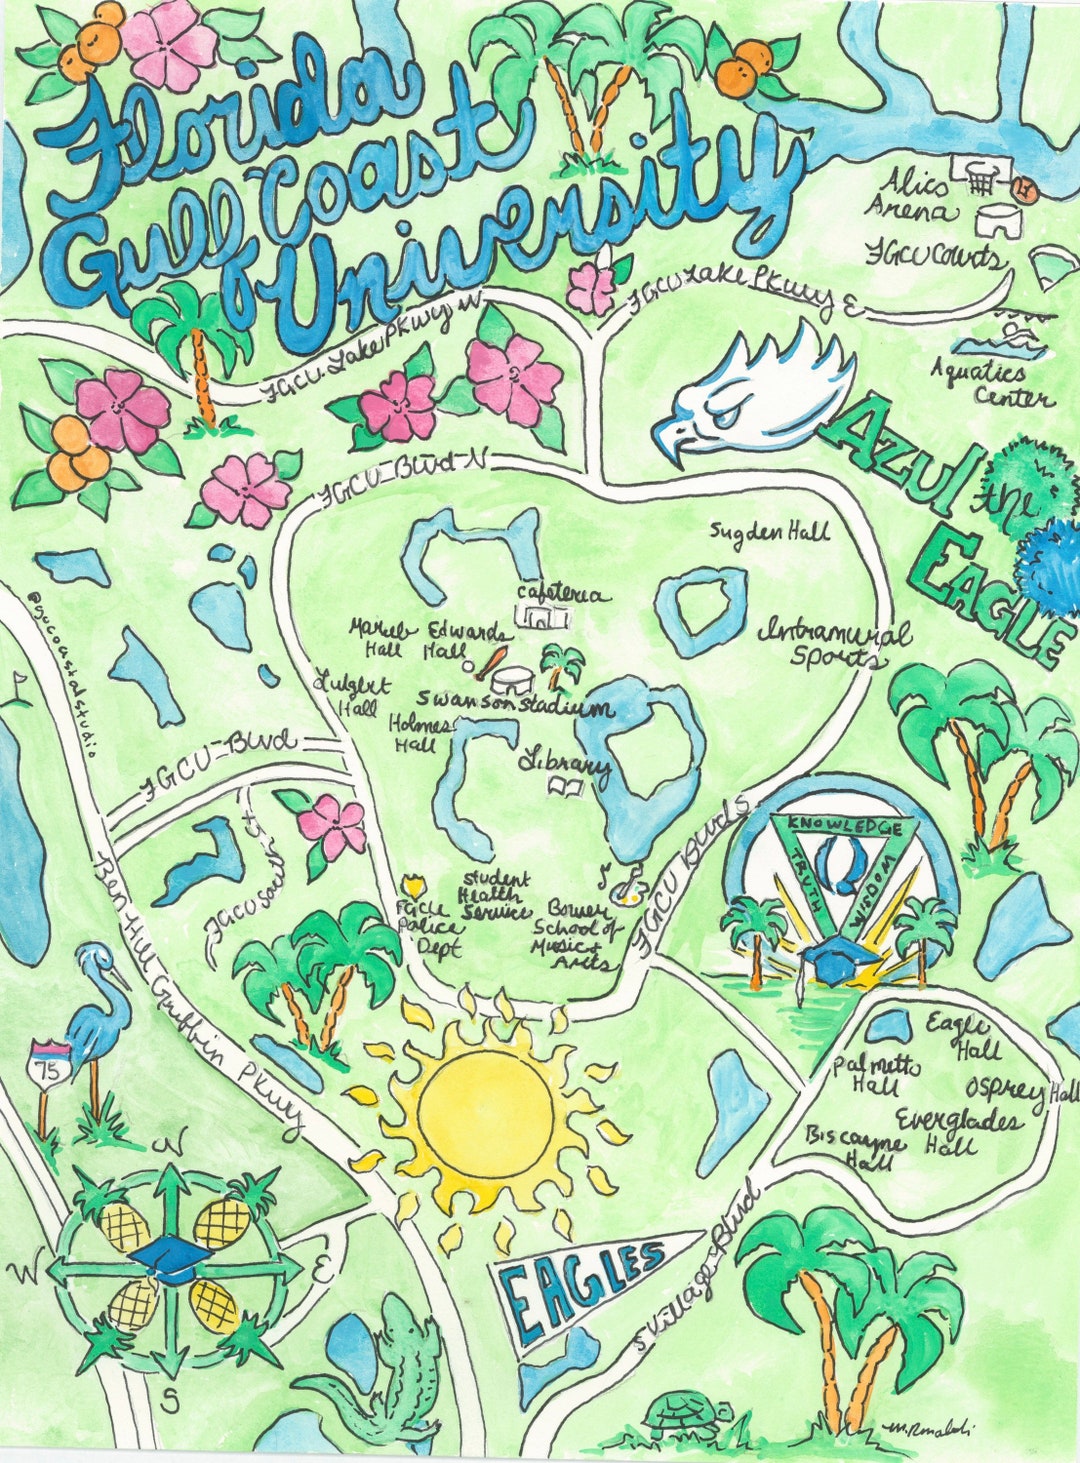 Florida
Gulf Coast
University
Alico
Arena
FGCU Courts
Aquatics
Center
FGCU Lake PKwy W
FGCU Lake PKwy E
AZUL
the
EAGLE
FGCU-Blvd-N
Sugden Hall
cafeteria
Marieb
Hall
Edwards
Hall
Intramural
Sports
Lutgert
Hall
Swanson Stadium
Holmes
Hall
Library
@gocoastalstudio
FGCU-Blvd
FGCU South-St
FGCU Blvd S
KNOWLEDGE
TRUTH
WISDOM
Student
Health
Services
FGCU
Police
Dept
Bower
School of
Music +
Arts
Ben Hill Griffin PKwy
75
Eagle
Hall
Palmetto
Hall
Osprey Hall
Everglades
Hall
Biscayne
Hall
N
W
E
S
EAGLES
S Village-Blvd